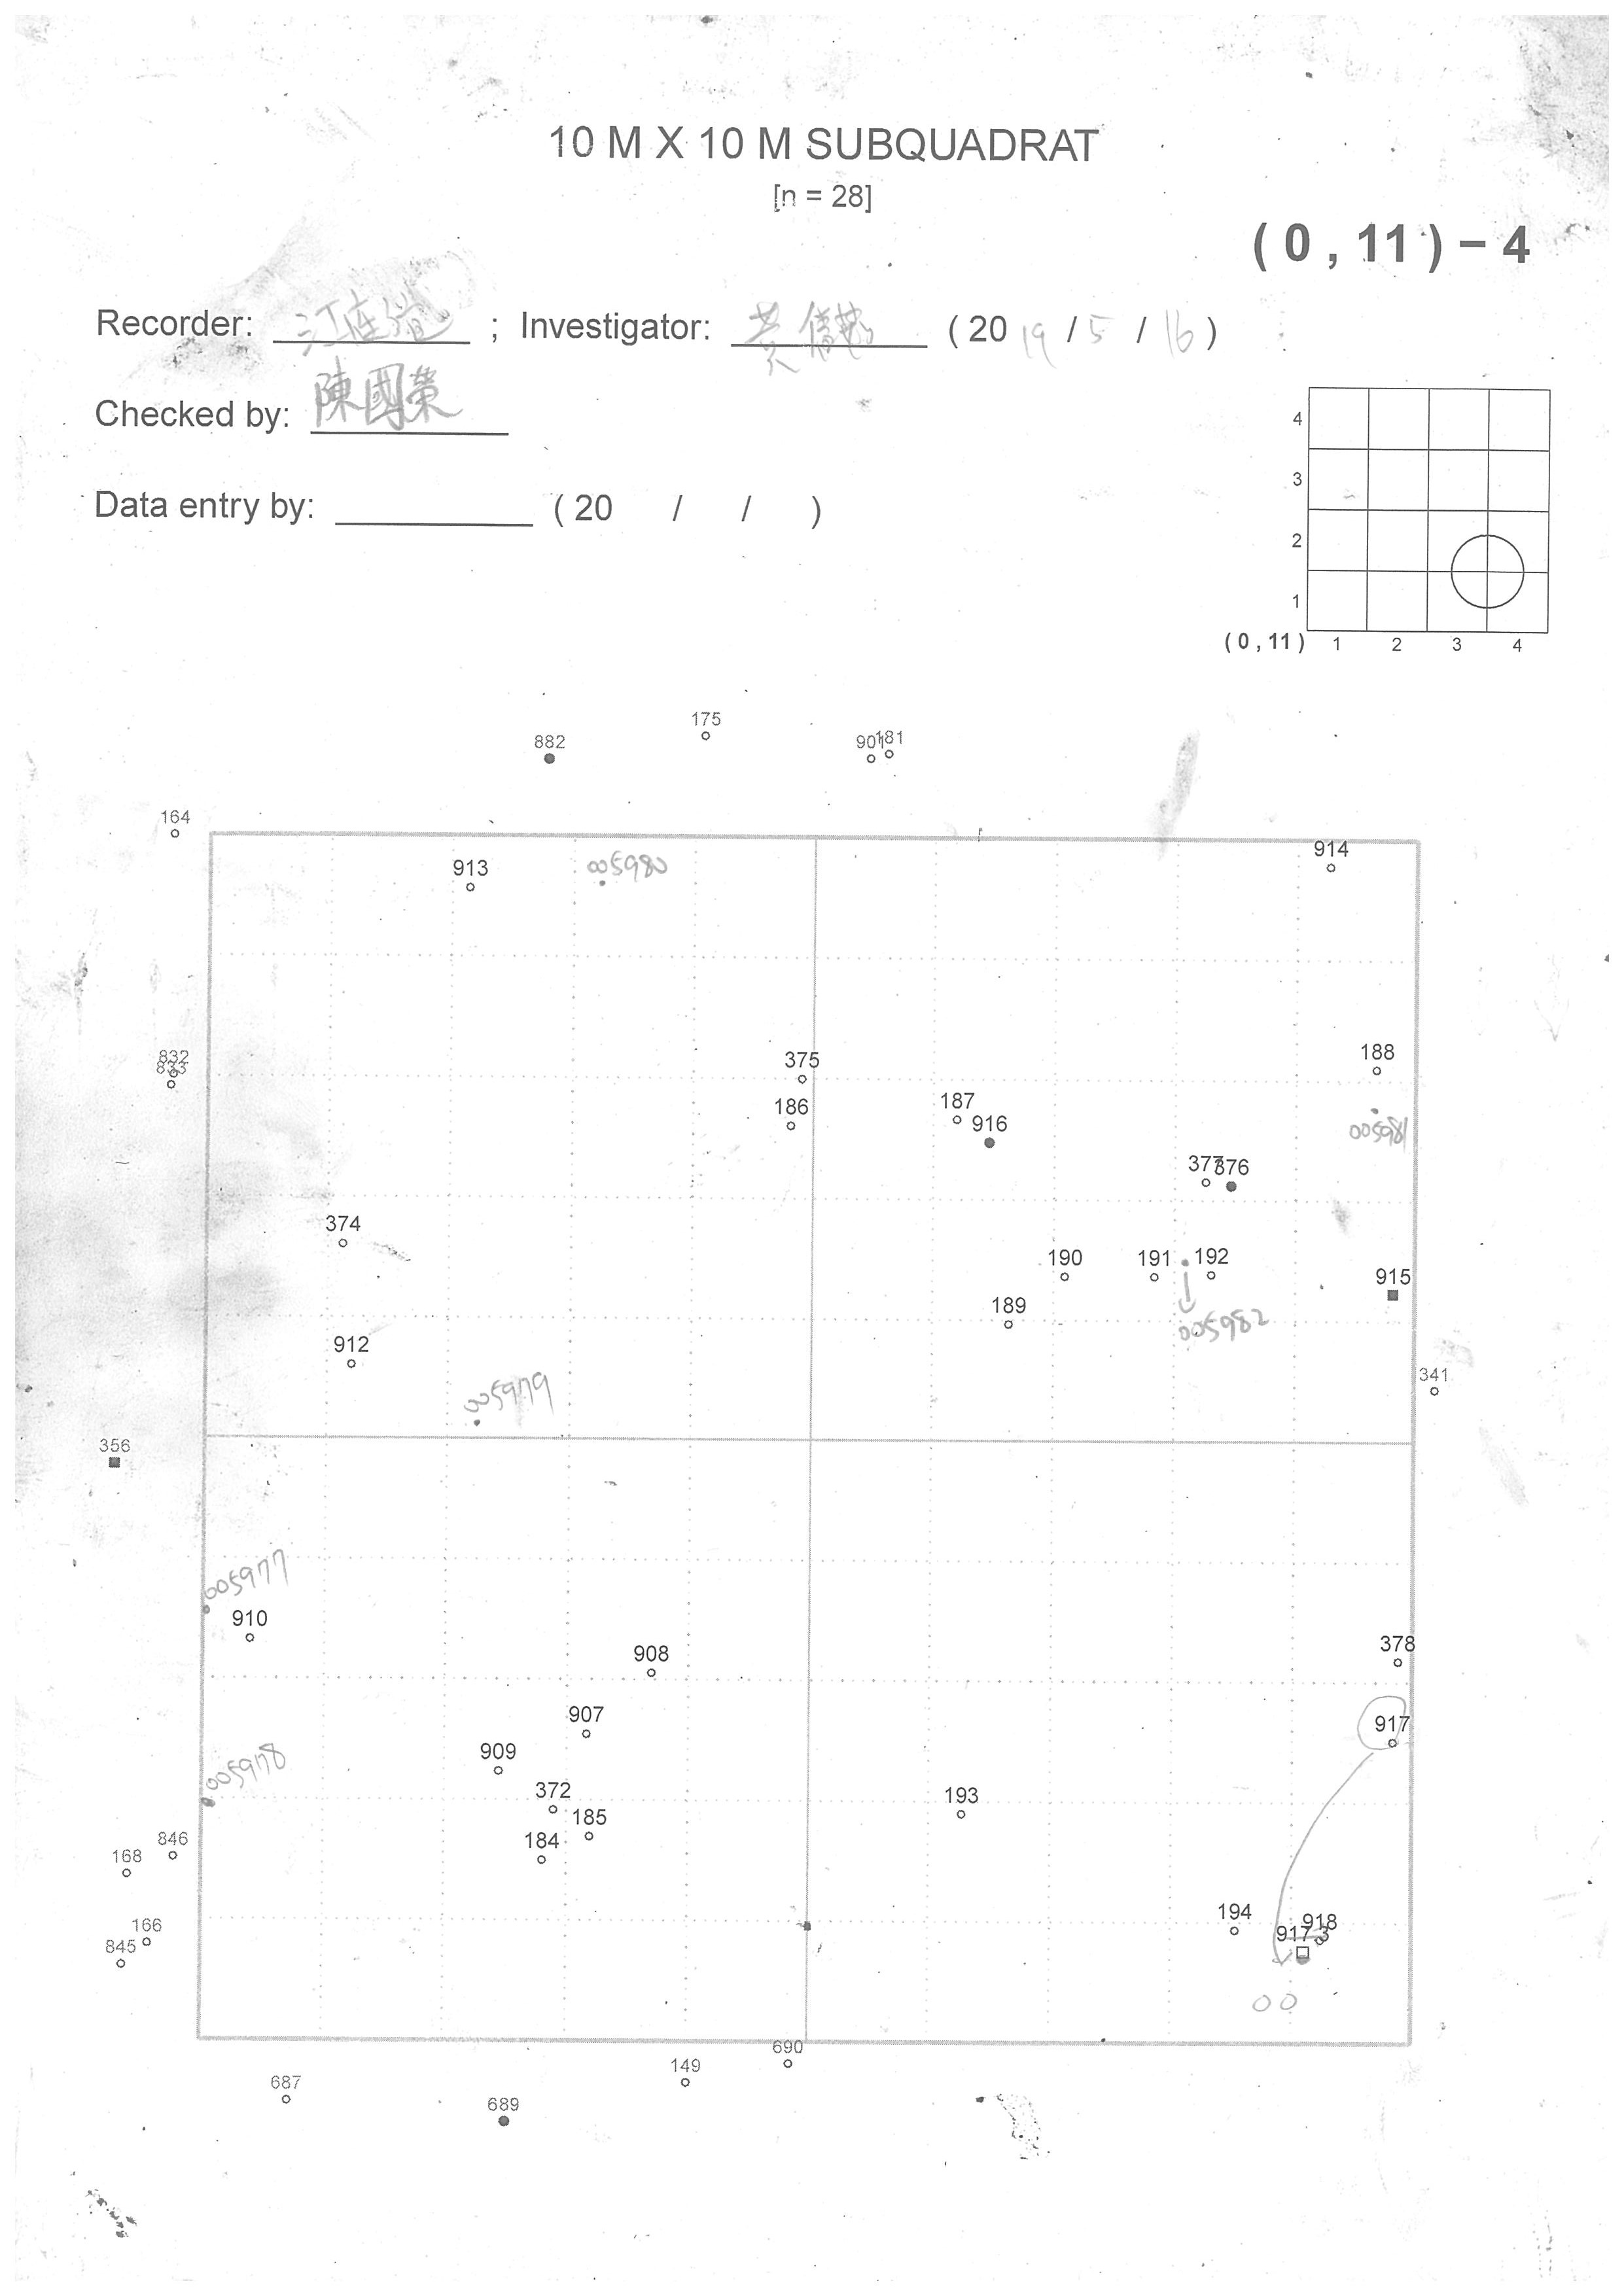 10 M X 10 M SUBQUADRAT
[n = 28]
( 0 , 11 ) – 4
Recorder: ; Investigator: ( 20 19 / 5 / 16 )
Checked by: 陳國榮
Data entry by: ( 20 / / )
4
3
2
1
( 0 , 11 ) 1 2 3 4
175
882
901 181
164
913
005980
914
832
833
375
188
186
187
916
005981
377 376
374
190
191
192
915
189
005982
912
341
005979
356
005977
910
908
378
907
917
909
005978
372
185
193
184
846
168
194
918
917
166
845
00
690
149
687
689